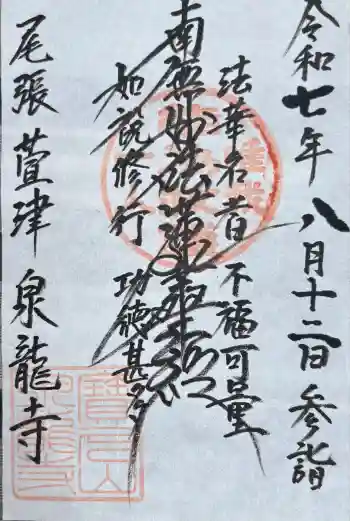 令和七年八月十二日参詣
法華名者不福可量
南無妙法蓮華経
如説修行功徳甚多
尾張萱津泉龍寺